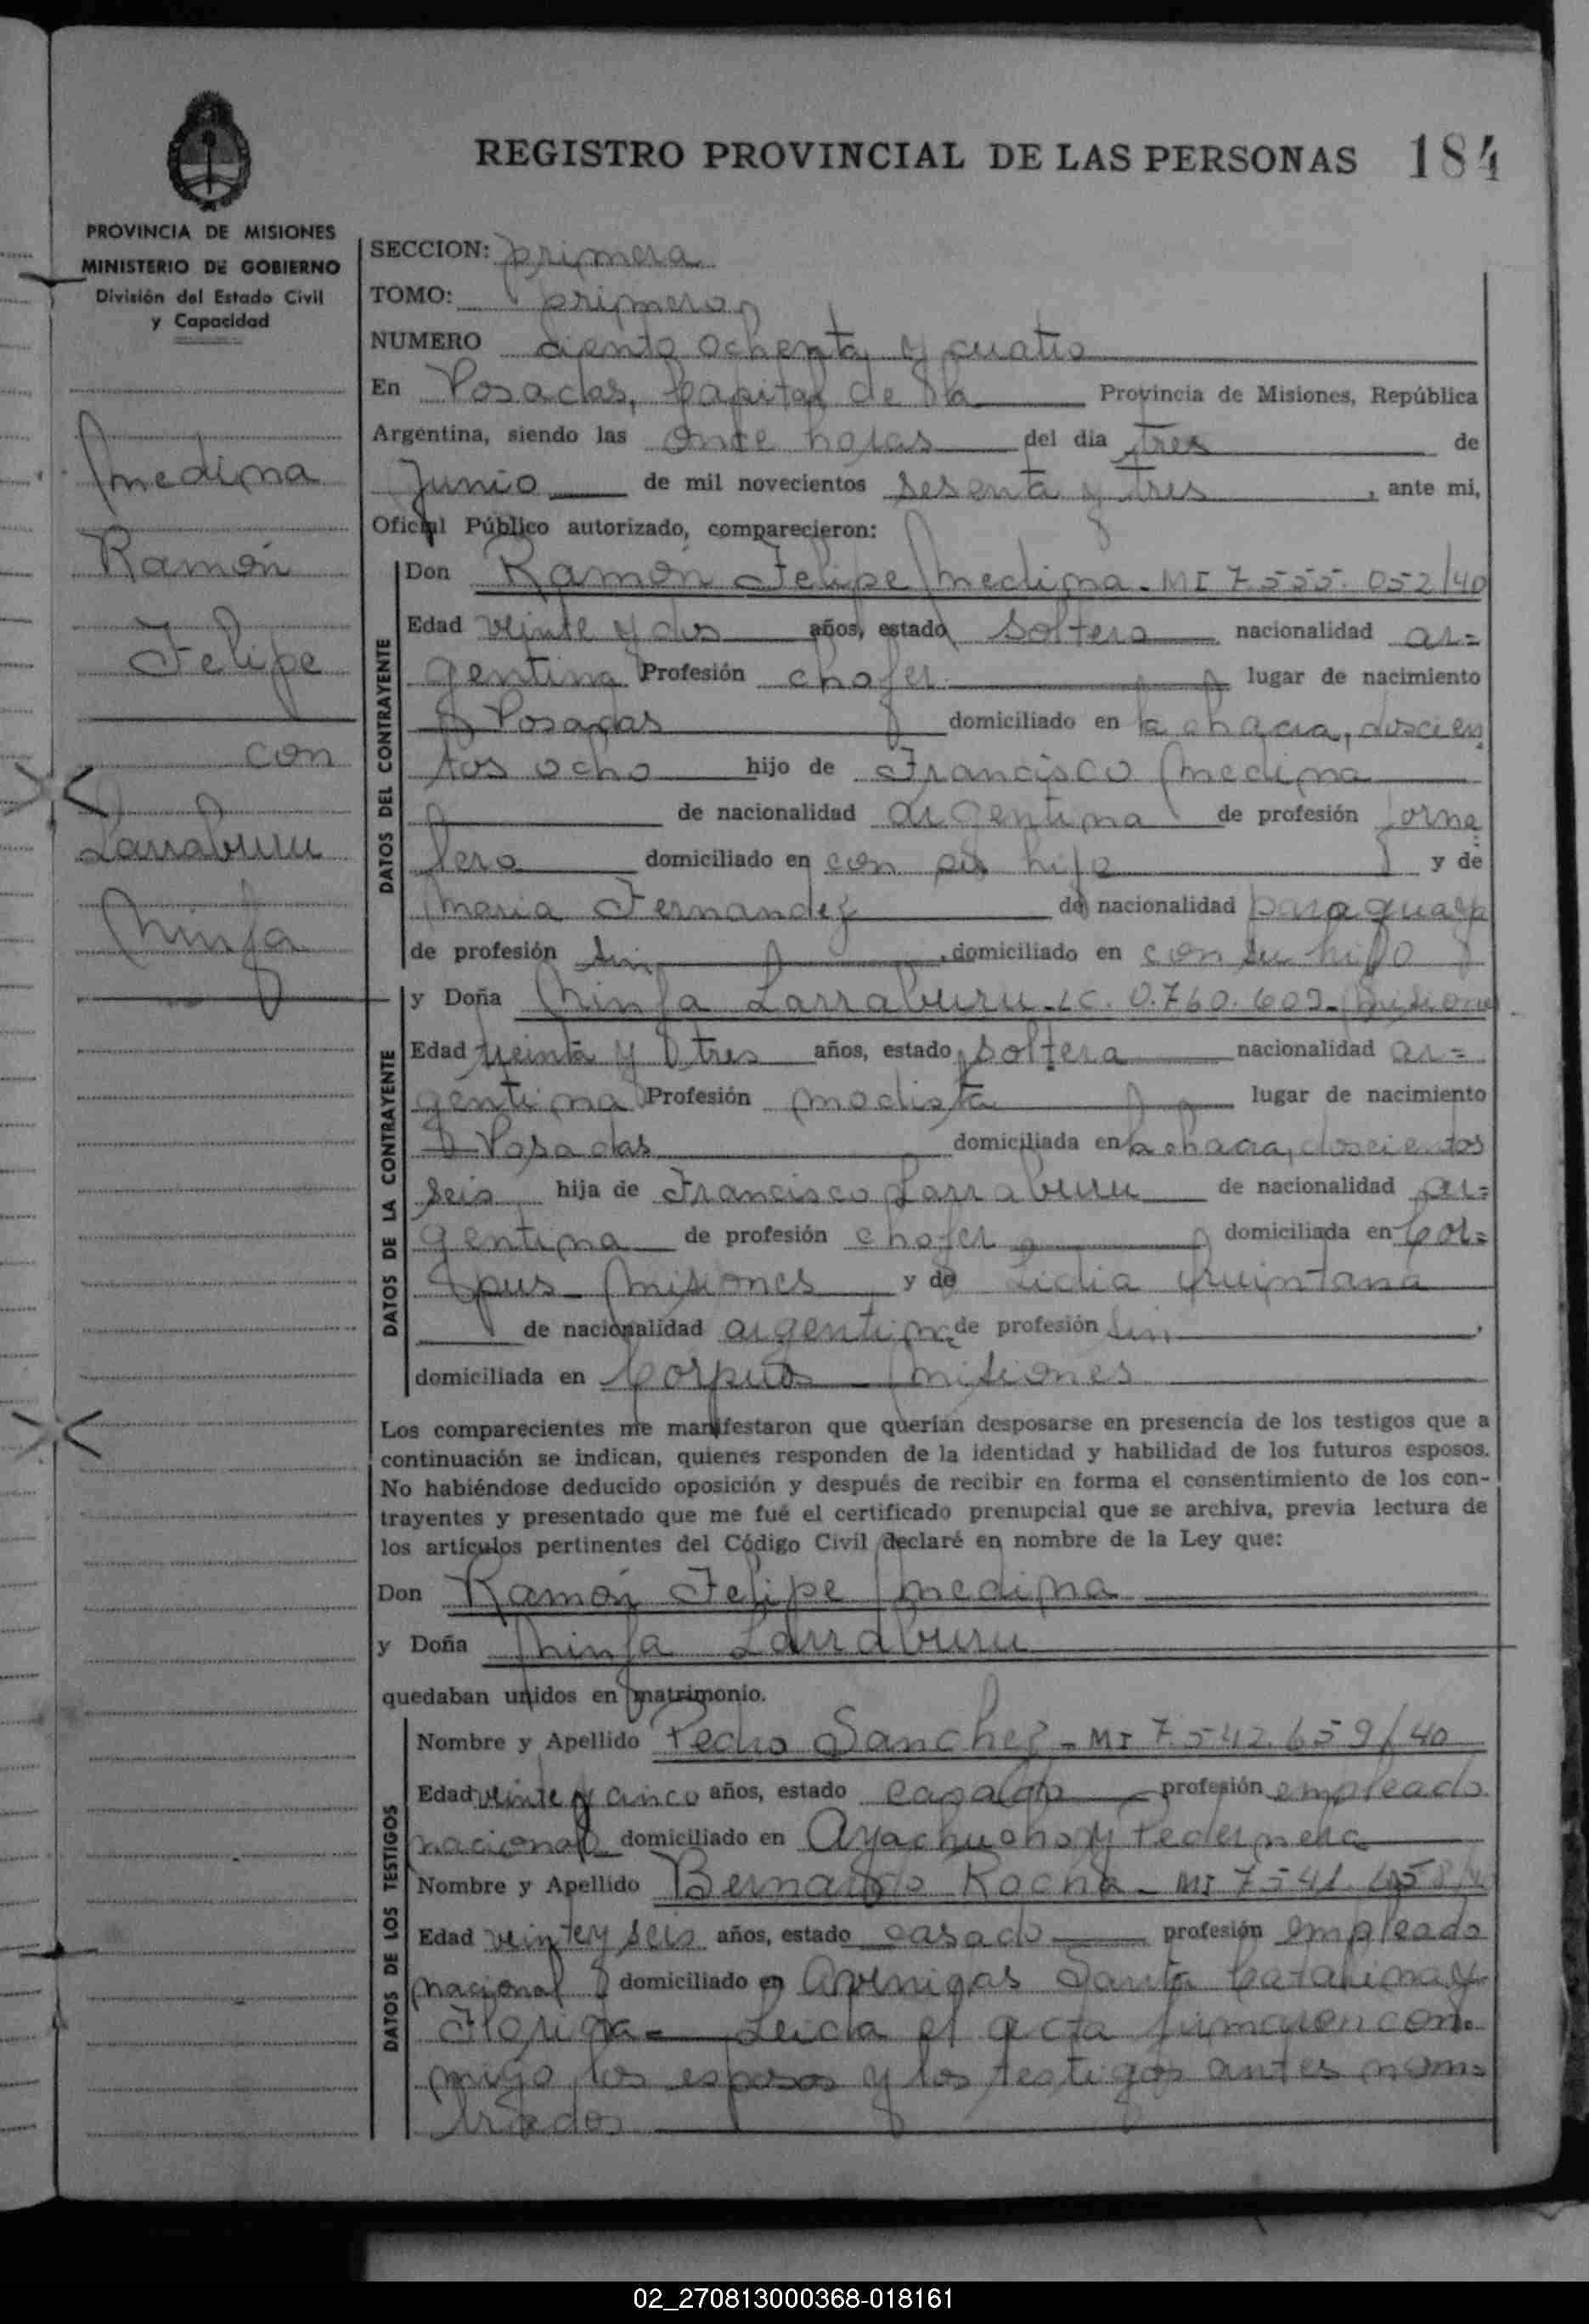 REGISTRO PROVINCIAL DE LAS PERSONAS 184
PROVINCIA DE MISIONES
MINISTERIO DE GOBIERNO
División del Estado Civil
y Capacidad
Medina
Ramón
Felipe
con
Larraburu
Ninfa
SECCION: primera
TOMO: primero
NUMERO ciento ochenta y cuatro
En Posadas, Capital de la Provincia de Misiones, República
Argentina, siendo las once horas del día tres de
Junio de mil novecientos sesenta y tres, ante mi,
Oficial Público autorizado, comparecieron:
DATOS DEL CONTRAYENTE
Don Ramón Felipe Medina - MI 7.555.052/40
Edad veinte y dos años, estado soltero nacionalidad ar=
gentina Profesión chofer lugar de nacimiento
Posadas domiciliado en la chacra, doscien
tos ocho hijo de Francisco Medina
de nacionalidad argentina de profesión jorna
lero domiciliado en con su hijo y de
Maria Fernandez de nacionalidad paraguaya
de profesión sin, domiciliado en con su hijo
DATOS DE LA CONTRAYENTE
y Doña Ninfa Larraburu - LC. 0.760.602 - Misiones
Edad treinta y tres años, estado soltera nacionalidad ar=
gentina Profesión modista lugar de nacimiento
Posadas domiciliada en la chacra, doscientos
seis hija de Francisco Larraburu de nacionalidad ar=
gentina de profesión chofer domiciliada en Cor=
pus Misiones y de Lidia Quintana
de nacionalidad argentina de profesión sin.
domiciliada en Corpus Misiones
Los comparecientes me manifestaron que querían desposarse en presencia de los testigos que a
continuación se indican, quienes responden de la identidad y habilidad de los futuros esposos.
No habiéndose deducido oposición y después de recibir en forma el consentimiento de los con-
trayentes y presentado que me fué el certificado prenupcial que se archiva, previa lectura de
los artículos pertinentes del Código Civil declaré en nombre de la Ley que:
Don Ramón Felipe Medina
y Doña Ninfa Larraburu
quedaban unidos en matrimonio.
DATOS DE LOS TESTIGOS
Nombre y Apellido Pedro Sanchez - MI 7.542.659/40
Edad veinte y cinco años, estado casado profesión empleado
nacional domiciliado en Ayachucho y Pedernera
Nombre y Apellido Bernardo Rocha - MI 7541
Edad veinte y seis años, estado casado profesión empleado
nacional domiciliado en Avenidas Santa Catalina y
Florida = Leida el acta firmaron con=
migo los esposos y los testigos antes nom=
brados
02_270813000368-018161